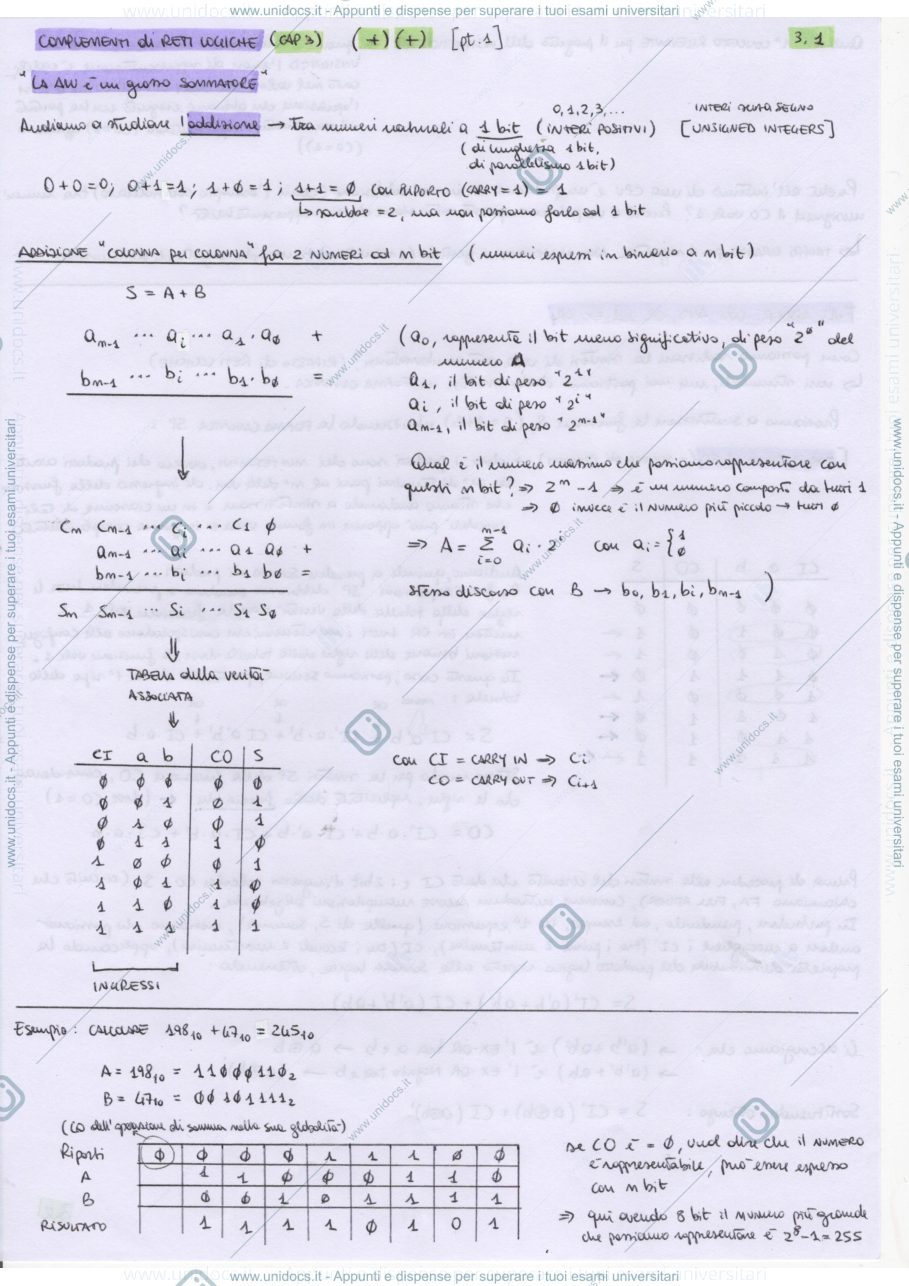 www.unidocs.it - Appunti e dispense per superare i tuoi esami universitari
COMPLEMENTI di RETI LOGICHE (CAP 3) (+)(+) [pt.1] 3.1
"LA ALU è un grosso SOMMATORE"
Andiamo a studiare l'addizione → tra numeri naturali a 1 bit (INTERI POSITIVI) [UNSIGNED INTEGERS]
0,1,2,3,... INTERI SENZA SEGNO
(di lunghezza 1 bit,
di parallelismo 1 bit)
0+0=0; 0+1=1; 1+0=1; 1+1=0 CON RIPORTO (CARRY=1) = 1
↳ sarebbe =2, ma noi possiamo farlo sol 1 bit
ADDIZIONE "COLONNA per COLONNA" fra 2 NUMERI ad n bit (numeri espressi in binario a n bit)
S = A + B
an-1 ... ai ... a1 . a0 +
bn-1 ... bi ... b1 . b0 =
(a0, rappresenta il bit meno significativo, di peso "2^0" del
numero A
a1, il bit di peso "2^1"
ai, il bit di peso "2^i"
an-1, il bit di peso "2^n-1"
Qual è il numero massimo che possiamo rappresentare con
questi n bit? ⇒ 2^n - 1 ⇒ è un numero composto da tutti 1
⇒ 0 invece è il NUMERO più piccolo → tutti 0
⇒ A = Σ ai · 2^i con ai = { 1 0
n-1
i=0
stesso discorso con B → b0, b1, bi, bn-1 )
Cn Cn-1 ... Ci ... C1 0
an-1 ... ai ... a1 a0 +
bn-1 ... bi ... b1 b0 =
Sn Sn-1 ... Si ... S1 S0
TABELLA della verità
ASSOCIATA
CI a b CO S
0 0 0 0 0
0 0 1 0 1
0 1 0 0 1
0 1 1 1 0
1 0 0 0 1
1 0 1 1 0
1 1 0 1 0
1 1 1 1 1
INGRESSI
con CI = CARRY IN ⇒ Ci
CO = CARRY OUT ⇒ Ci+1
Esempio: CALCOLARE 198₁₀ + 47₁₀ = 245₁₀
A = 198₁₀ = 11000110₂
B = 47₁₀ = 00101111₂
(CO dell'operazione di somma nella sua globalità)
Riporti 0 0 0 0 1 1 1 0 0
A 1 1 0 0 0 1 1 0
B 0 0 1 0 1 1 1 1
RISULTATO 1 1 1 1 0 1 0 1
se CO è = 0, vuol dire che il NUMERO
è rappresentabile, può essere espresso
con n bit
⇒ qui avendo 8 bit il NUMERO più grande
che possiamo rappresentare è 2^8-1=255
www.unidocs.it - Appunti e dispense per superare i tuoi esami universitari